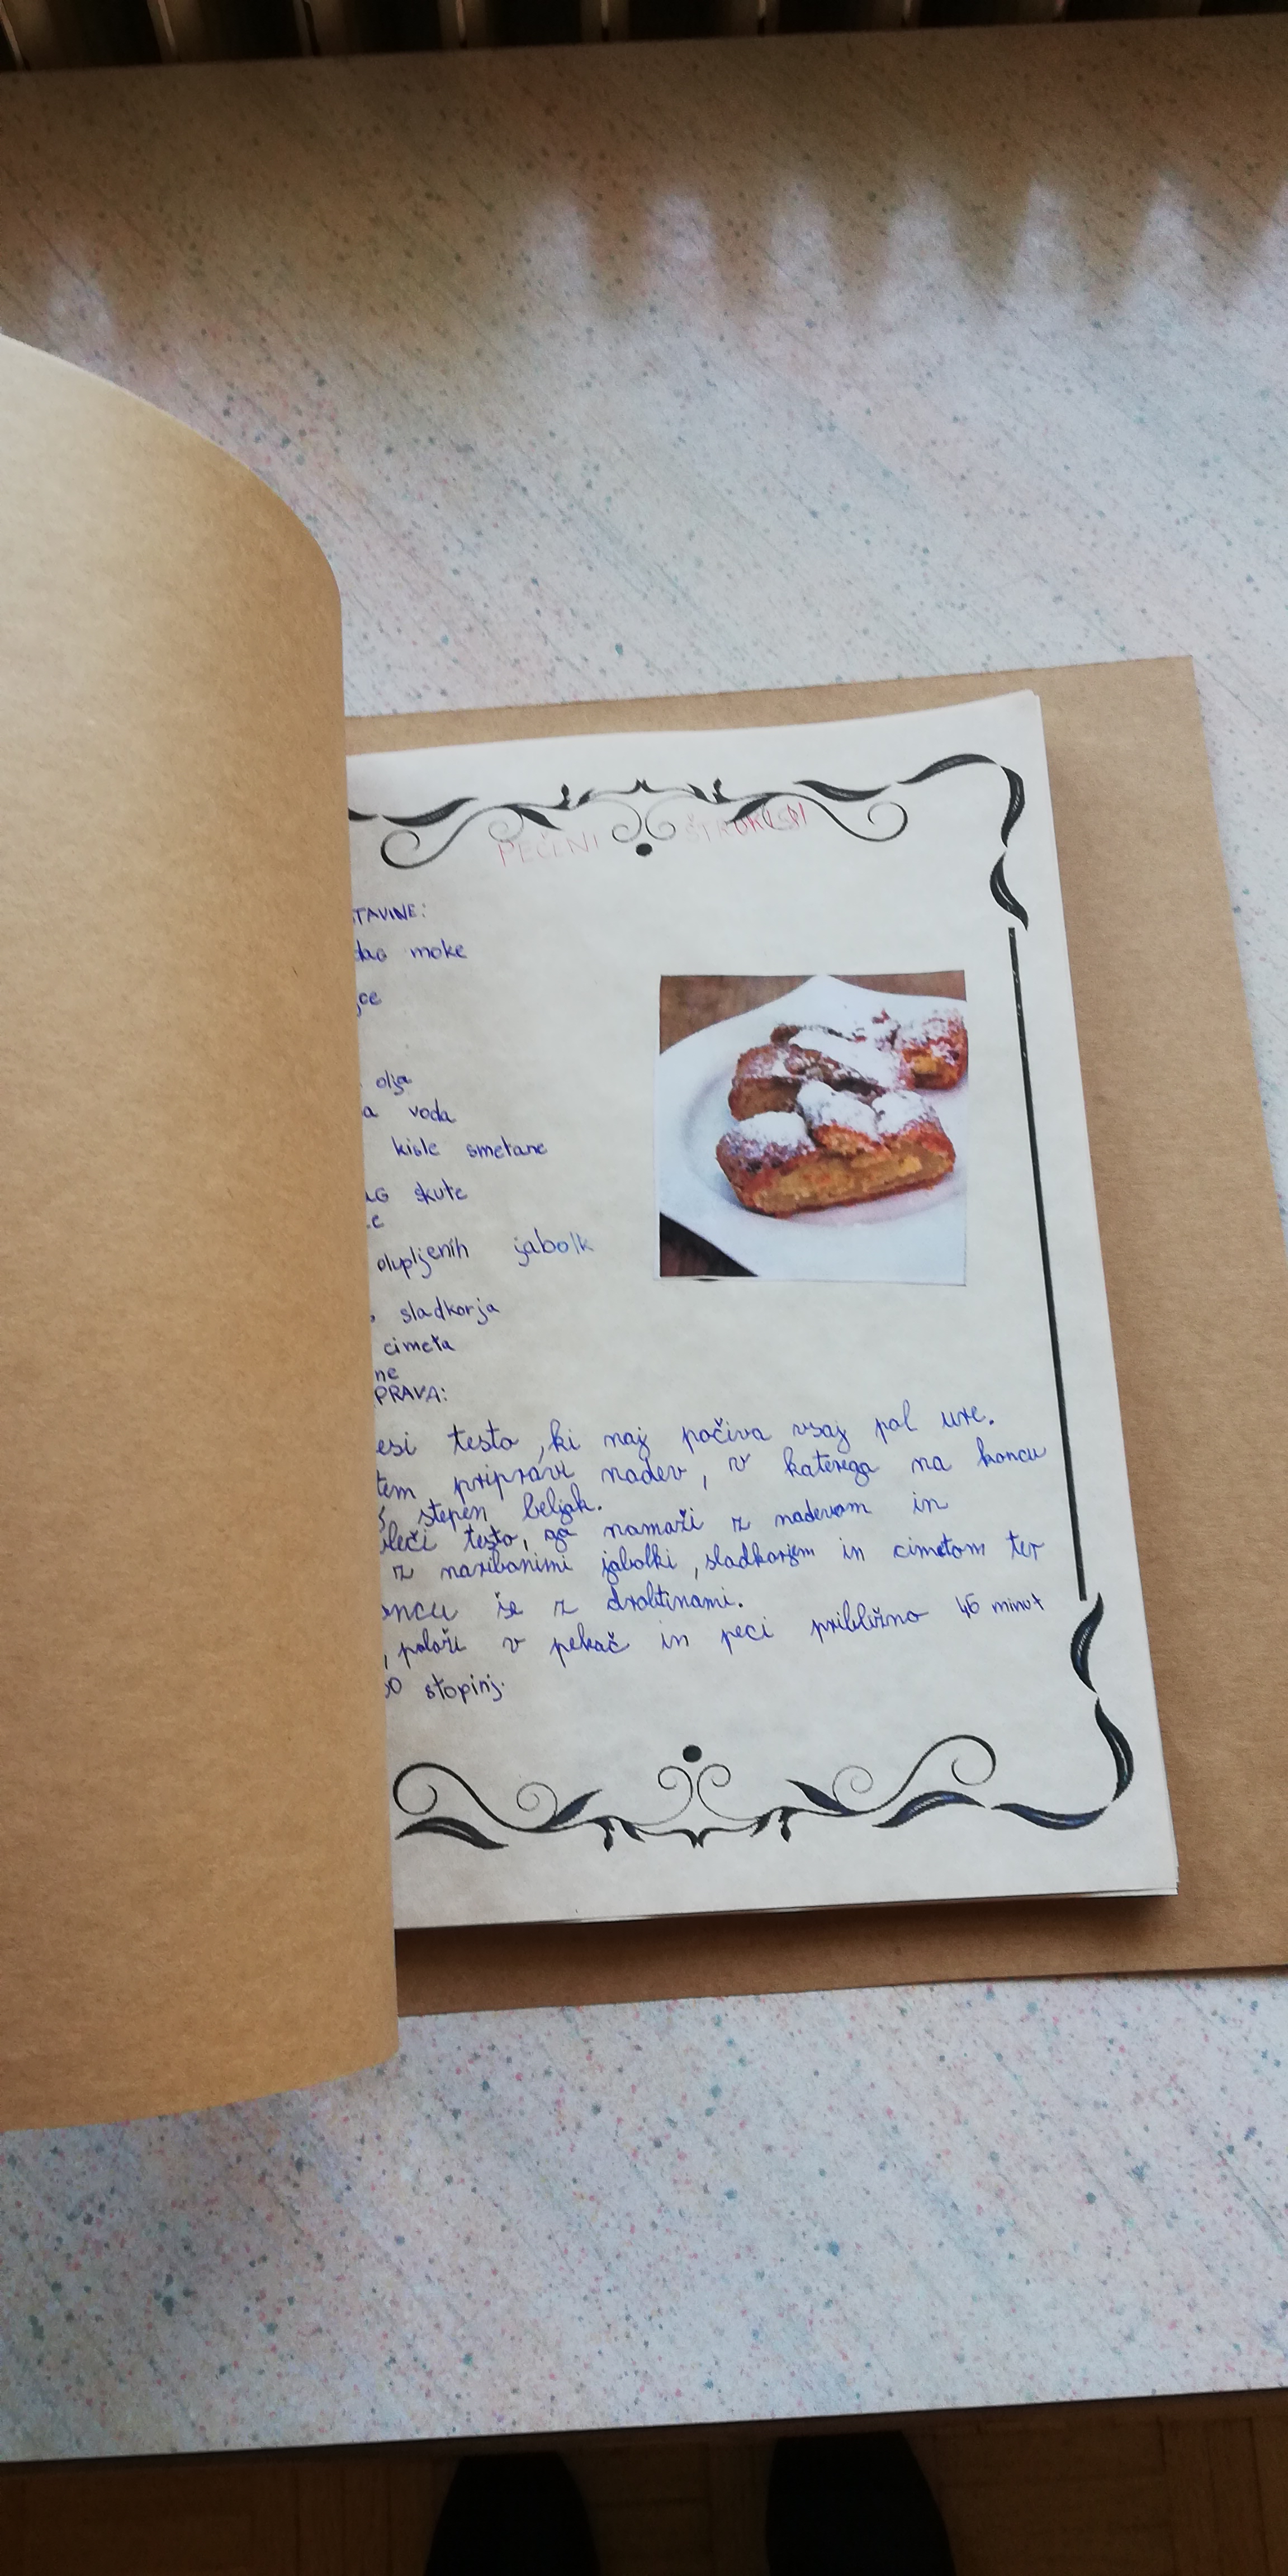 PEČENI ŠTRUKLJI
STAVINE:
dag moke
jce
olja
a voda
kisle smetane
AG skute
olupljenih jabolk
sladkorja
cimeta
ne
PRAVA:
esi testo, ki naj počiva vsaj pol ure.
tem pripravi nadev, v katerega na koncu
stepen beljak.
leči testo, ga namaži z nadevom in
z naribanimi jabolki, sladkorjem in cimetom ter
oncu še z drobtinami.
, položi v pekač in peci približno 45 minut
0 stopinj.